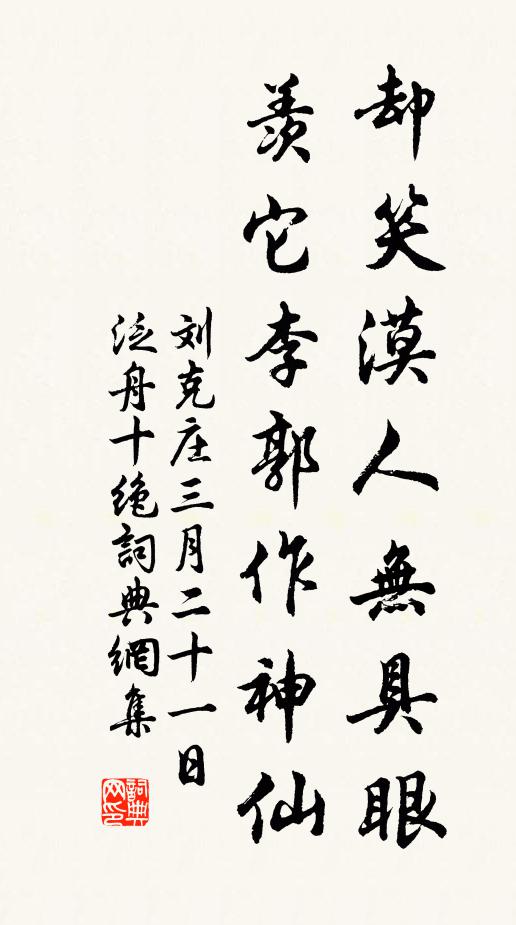 却笑漠人無具眼
羨它李郭作神仙
刘克庄三月二十一日
泛舟十绝詞典網集
詞典网印